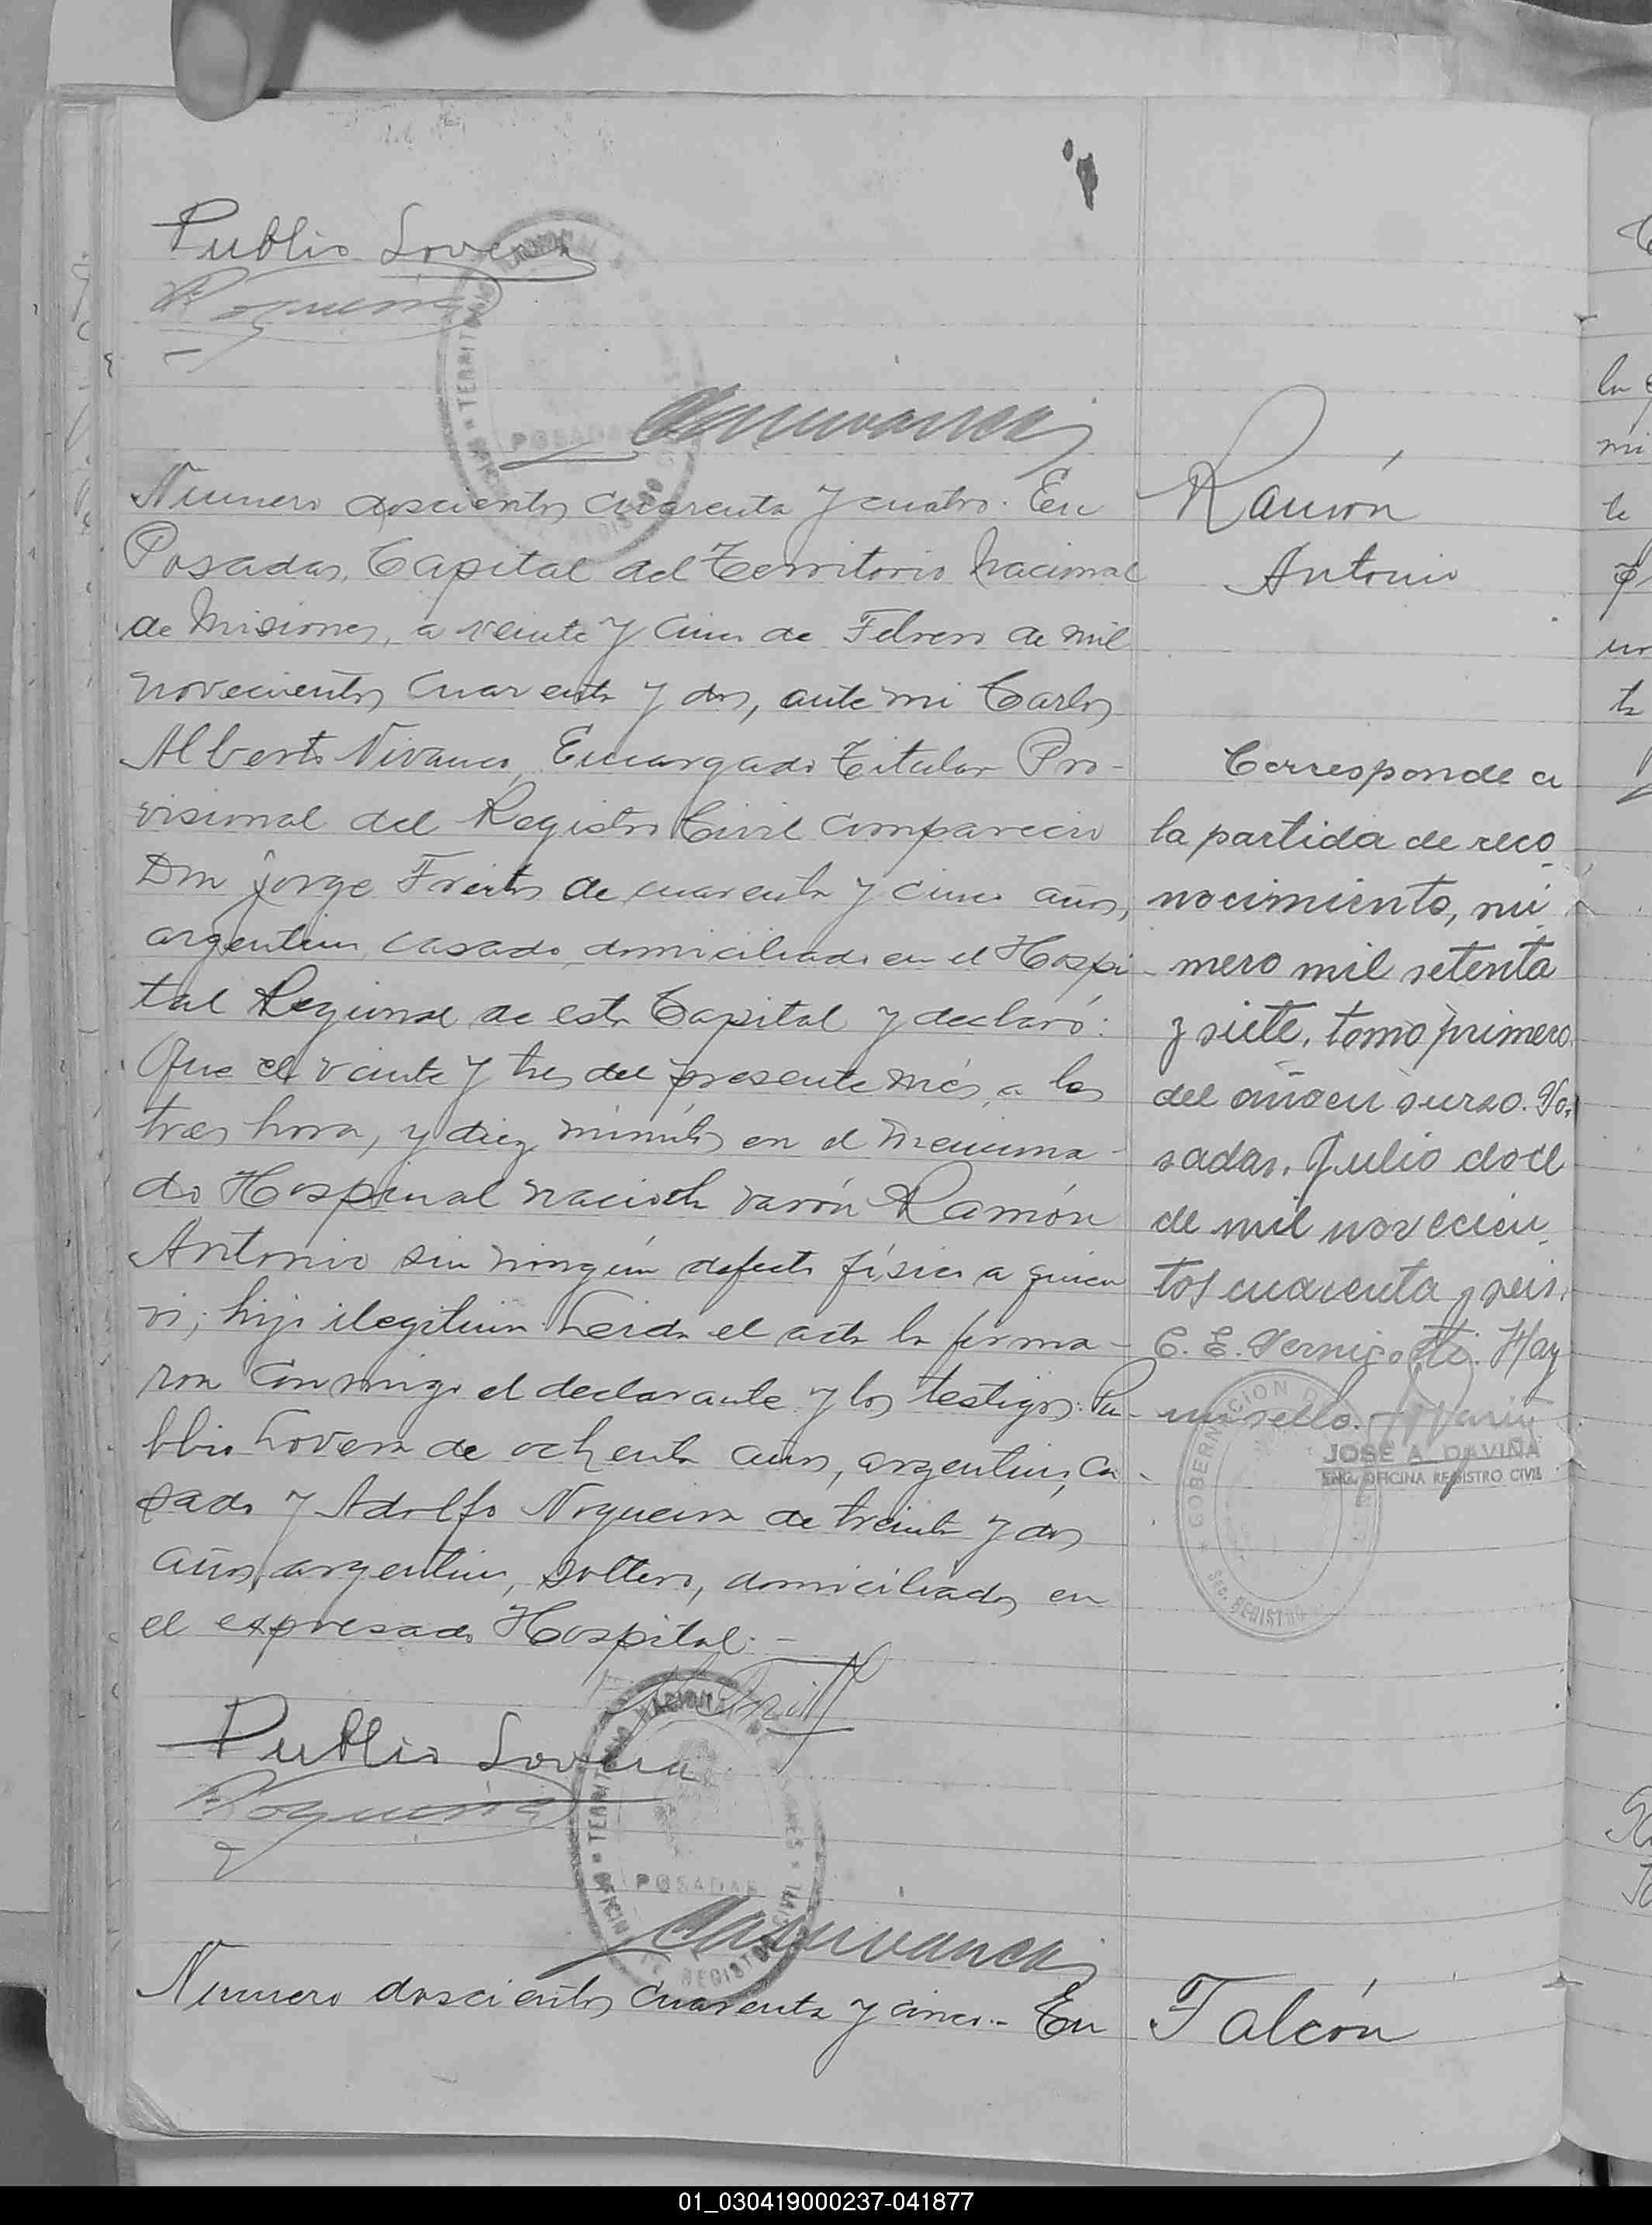 Publio Lovera
Nogueira
POSADAS
Numero doscientos cuarenta y cuatro. En
Posadas, Capital del Territorio Nacional
de Misiones, a veinte y cinco de Febrero de mil
novecientos cuarenta y dos, ante mi Carlos
Alberto Vivanco, Encargado Titular Pro-
visional del Registro Civil comparecio
Don Jorge Freites de cuarenta y cinco años,
argentino, casado, domiciliado en el Hospi-
tal Regional de esta Capital y declaró:
Que el veinte y tres del presente més, a las
tres hora, y diez minutos en el menciona-
do Hospital nacio el varón Ramón
Antonio sin ningún defecto físico a quien
vi; hijo ilegitimo. Leida el acta la firma-
ron conmigo el declarante y los testigos: Pu-
blio Lovera de ochenta años, argentino, ca-
sado y Adolfo Nogueira de treinta y dos
años, argentino, soltero, domiciliados en
el expresado Hospital.-
Publio Lovera
Nogueira
TERRITORIO NACIONAL
POSADAS
OFICINA DE REGISTRO CIVIL
Numero doscientos cuarenta y cinco.- En
Ramón
Antonio
Corresponde a
la partida de reco
nocimiento, nú
mero mil setenta
y siete, tomo primero
del año en curso. Po-
sadas, Julio doce
de mil novecien
tos cuarenta y seis.
C. E. Hay
un sello.
JOSE A. DAVIÑA
ENC. OFICINA REGISTRO CIVIL
Falcón
01_030419000237-041877